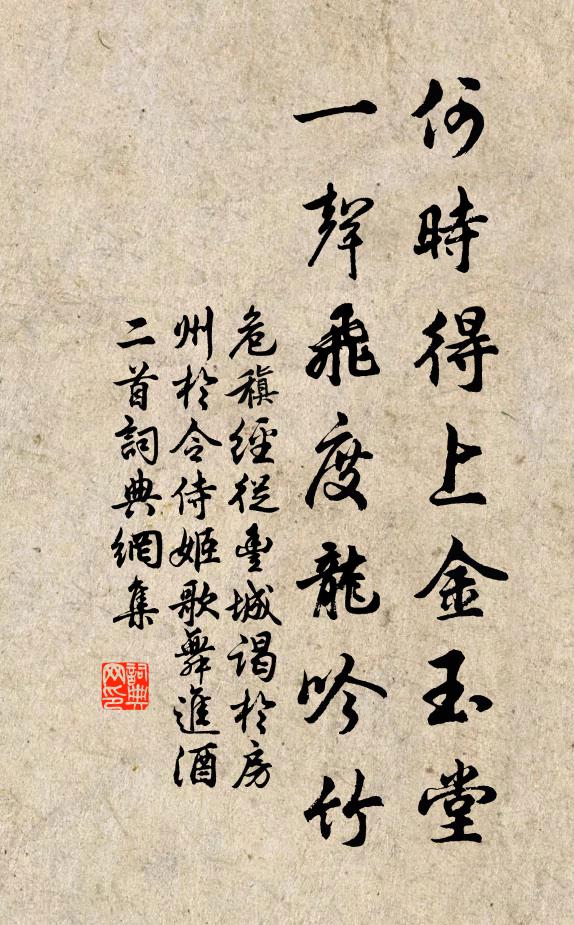 何時得上金玉堂
一聲飛度龍吟竹
危稹經從豐城謁於房
州於令侍姬歌舞進酒
二首詞典網集
詞典
网印